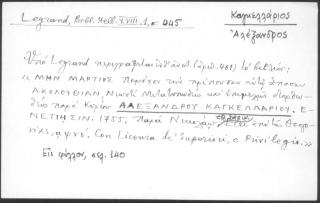 Legrand, Bibl. Hell. XVIII, 1, σ. 445
Καγκελλάριος
Ἀλέξανδρος
Ὑπὸ Legrand περιγράφεται (ἀριθ. 461) τὸ βιβλίον:
« ΜΗΝ ΜΑΡΤΙΟΣ Περιέχων τὴν πρέπουσαν αὐτῷ ἅπασαν
ΑΚΟΛΟΥΘΙΑΝ. Νεωστὶ Μετατυπωθεὶς καὶ ἐπιμελῶς διορθω-
θεὶς παρὰ Κυρίου ΑΛΕΞΑΝΔΡΟΥ ΚΑΓΚΕΛΛΑΡΙΟΥ. Ε-
ΝΕΤΙΗΣΙΝ. 1755. Παρὰ Νικολάῳ
αψνε. Con Licenza de' Superiori, e Privilegio. »
Εἰς φύλλον, σελ. 140